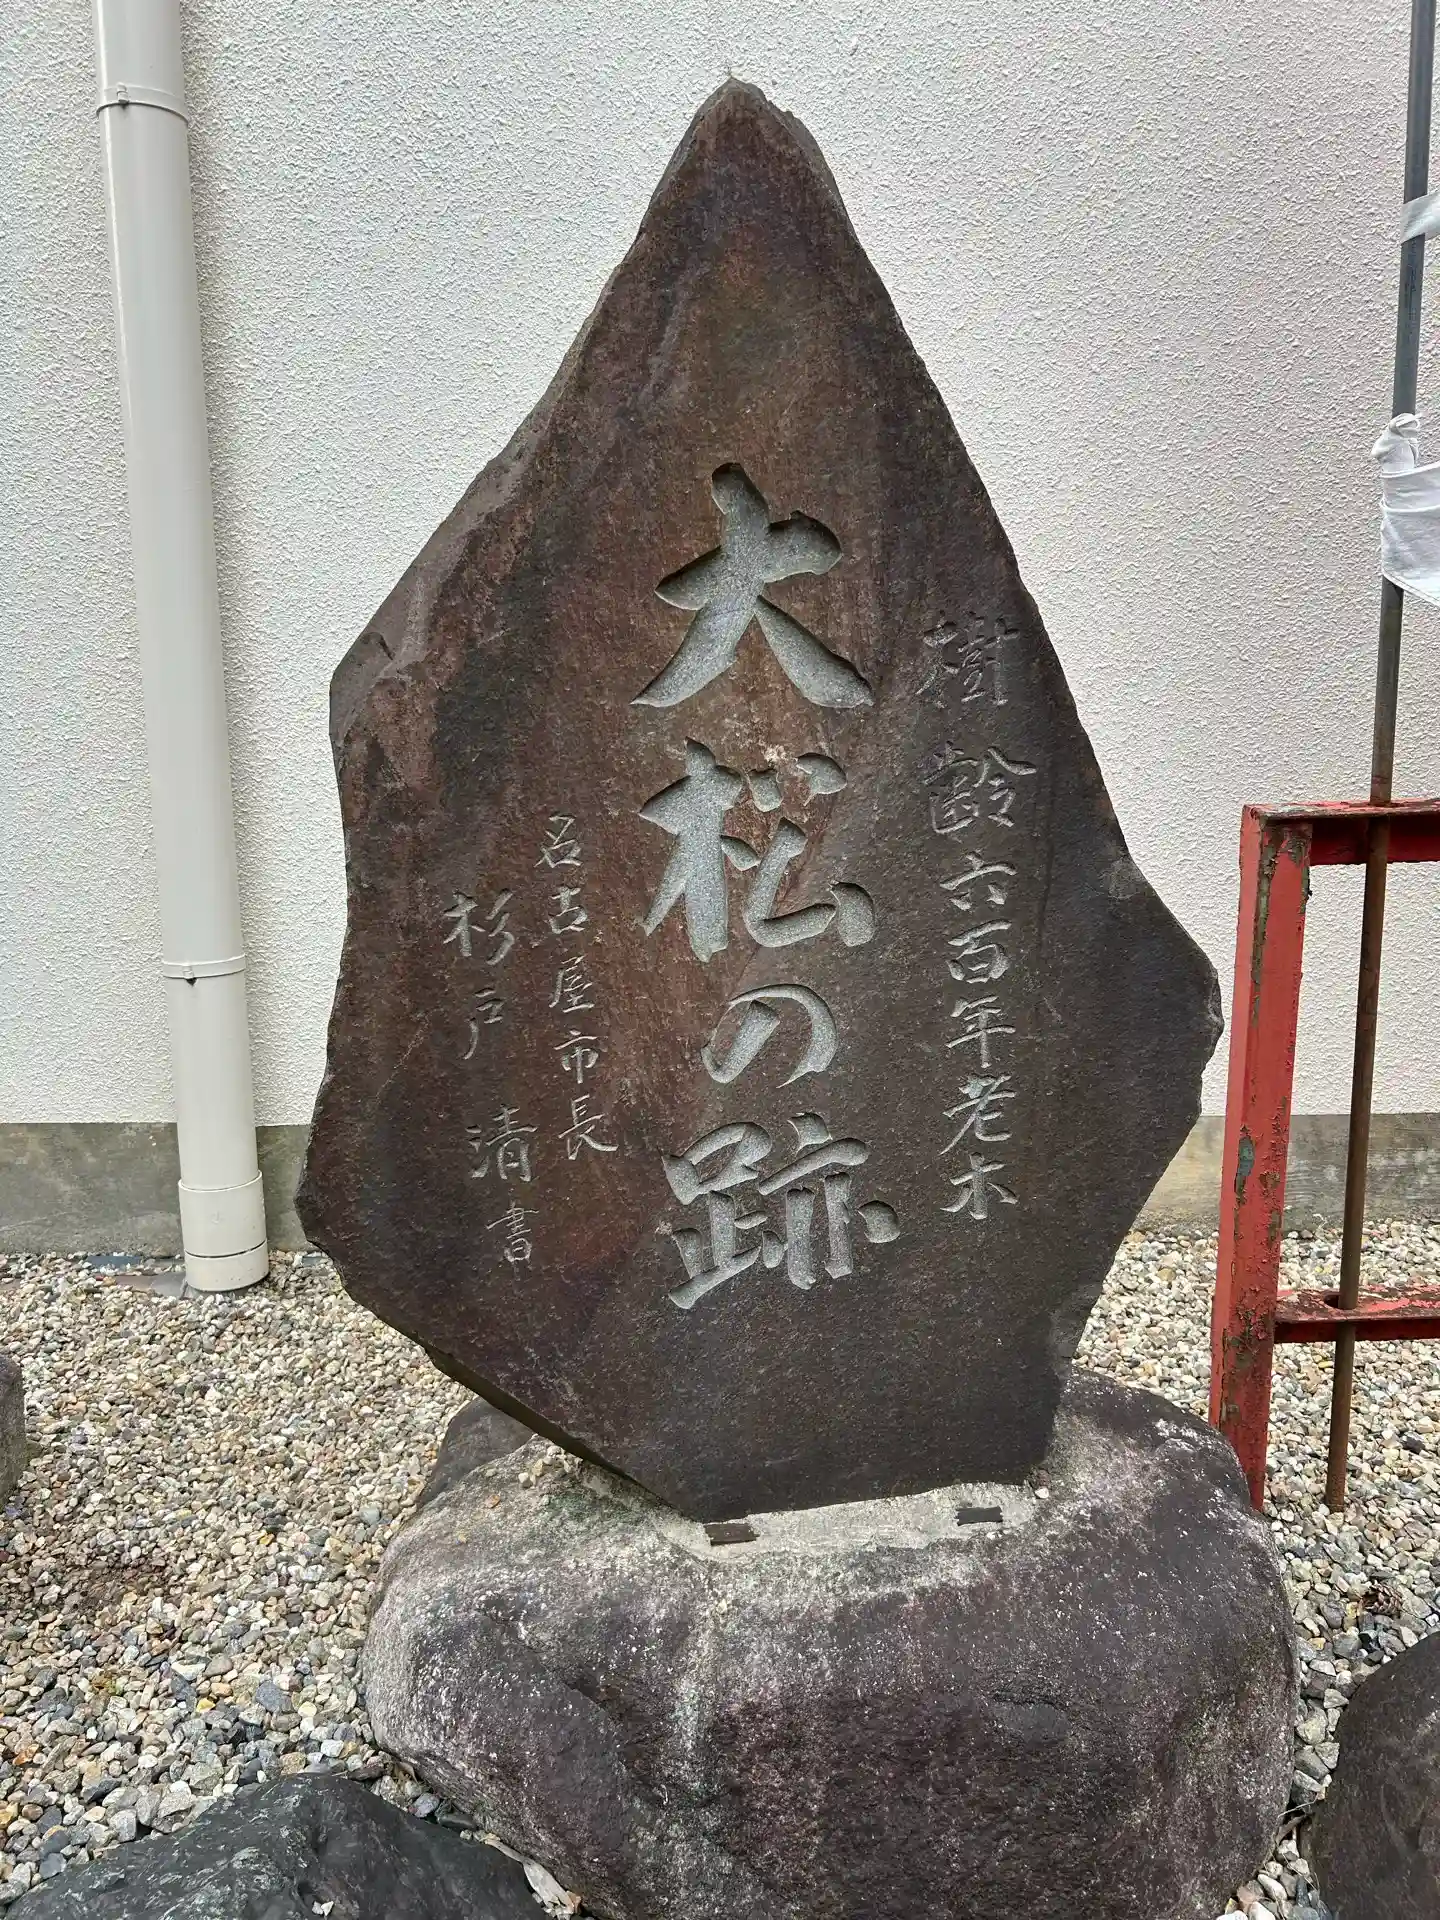 樹齢六百年老木
大松の跡
名古屋市長
杉戸清書